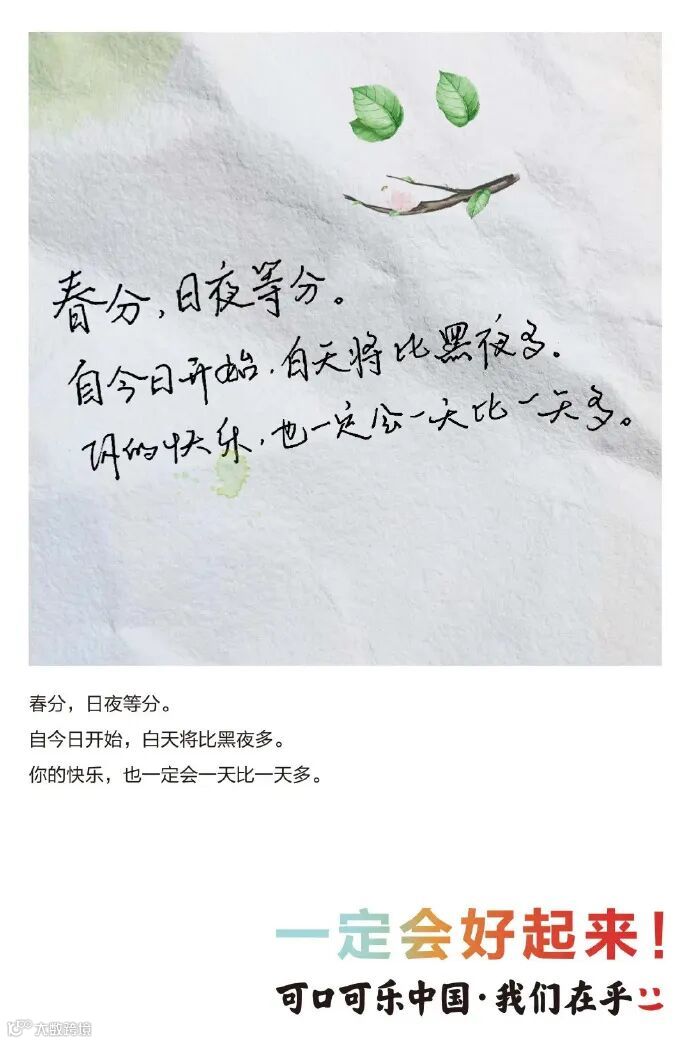 春分，日夜等分。
自今日开始，白天将比黑夜多。
你的快乐，也一定会一天比一天多。
春分，日夜等分。
自今日开始，白天将比黑夜多。
你的快乐，也一定会一天比一天多。
一定会好起来！
可口可乐中国·我们在乎
大数跨境